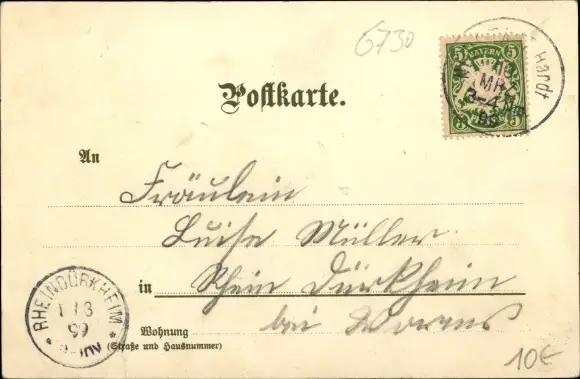 6730
5 BAYERN 5
Hardt
MRZ
99
Postkarte.
An
Fräulein
Luise Müller
in Rhein Dürkheim
bei Worms
RHEINDÜRKHEIM
1/3
99
Wohnung
(Straße und Hausnummer)
10€